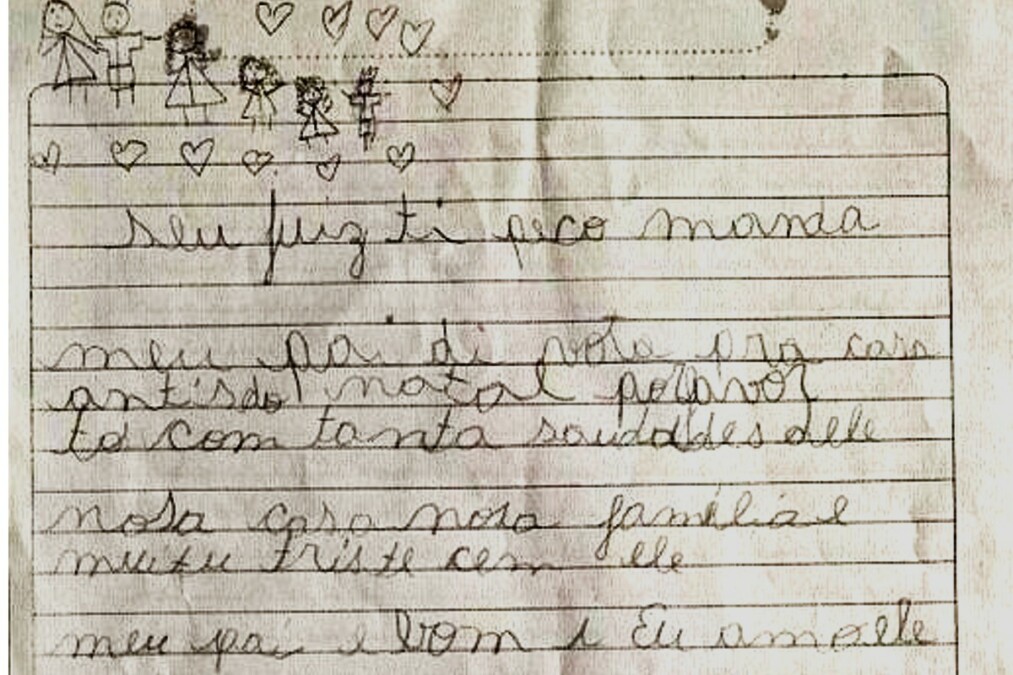 seu juiz ti peco manda
meu pai di vota pra casa
antisdo natal porfavor
to com tanta saudades dele
nosa casa nosa familia e
muitu triste cem ele
meu pai e bom i Eu amo ele